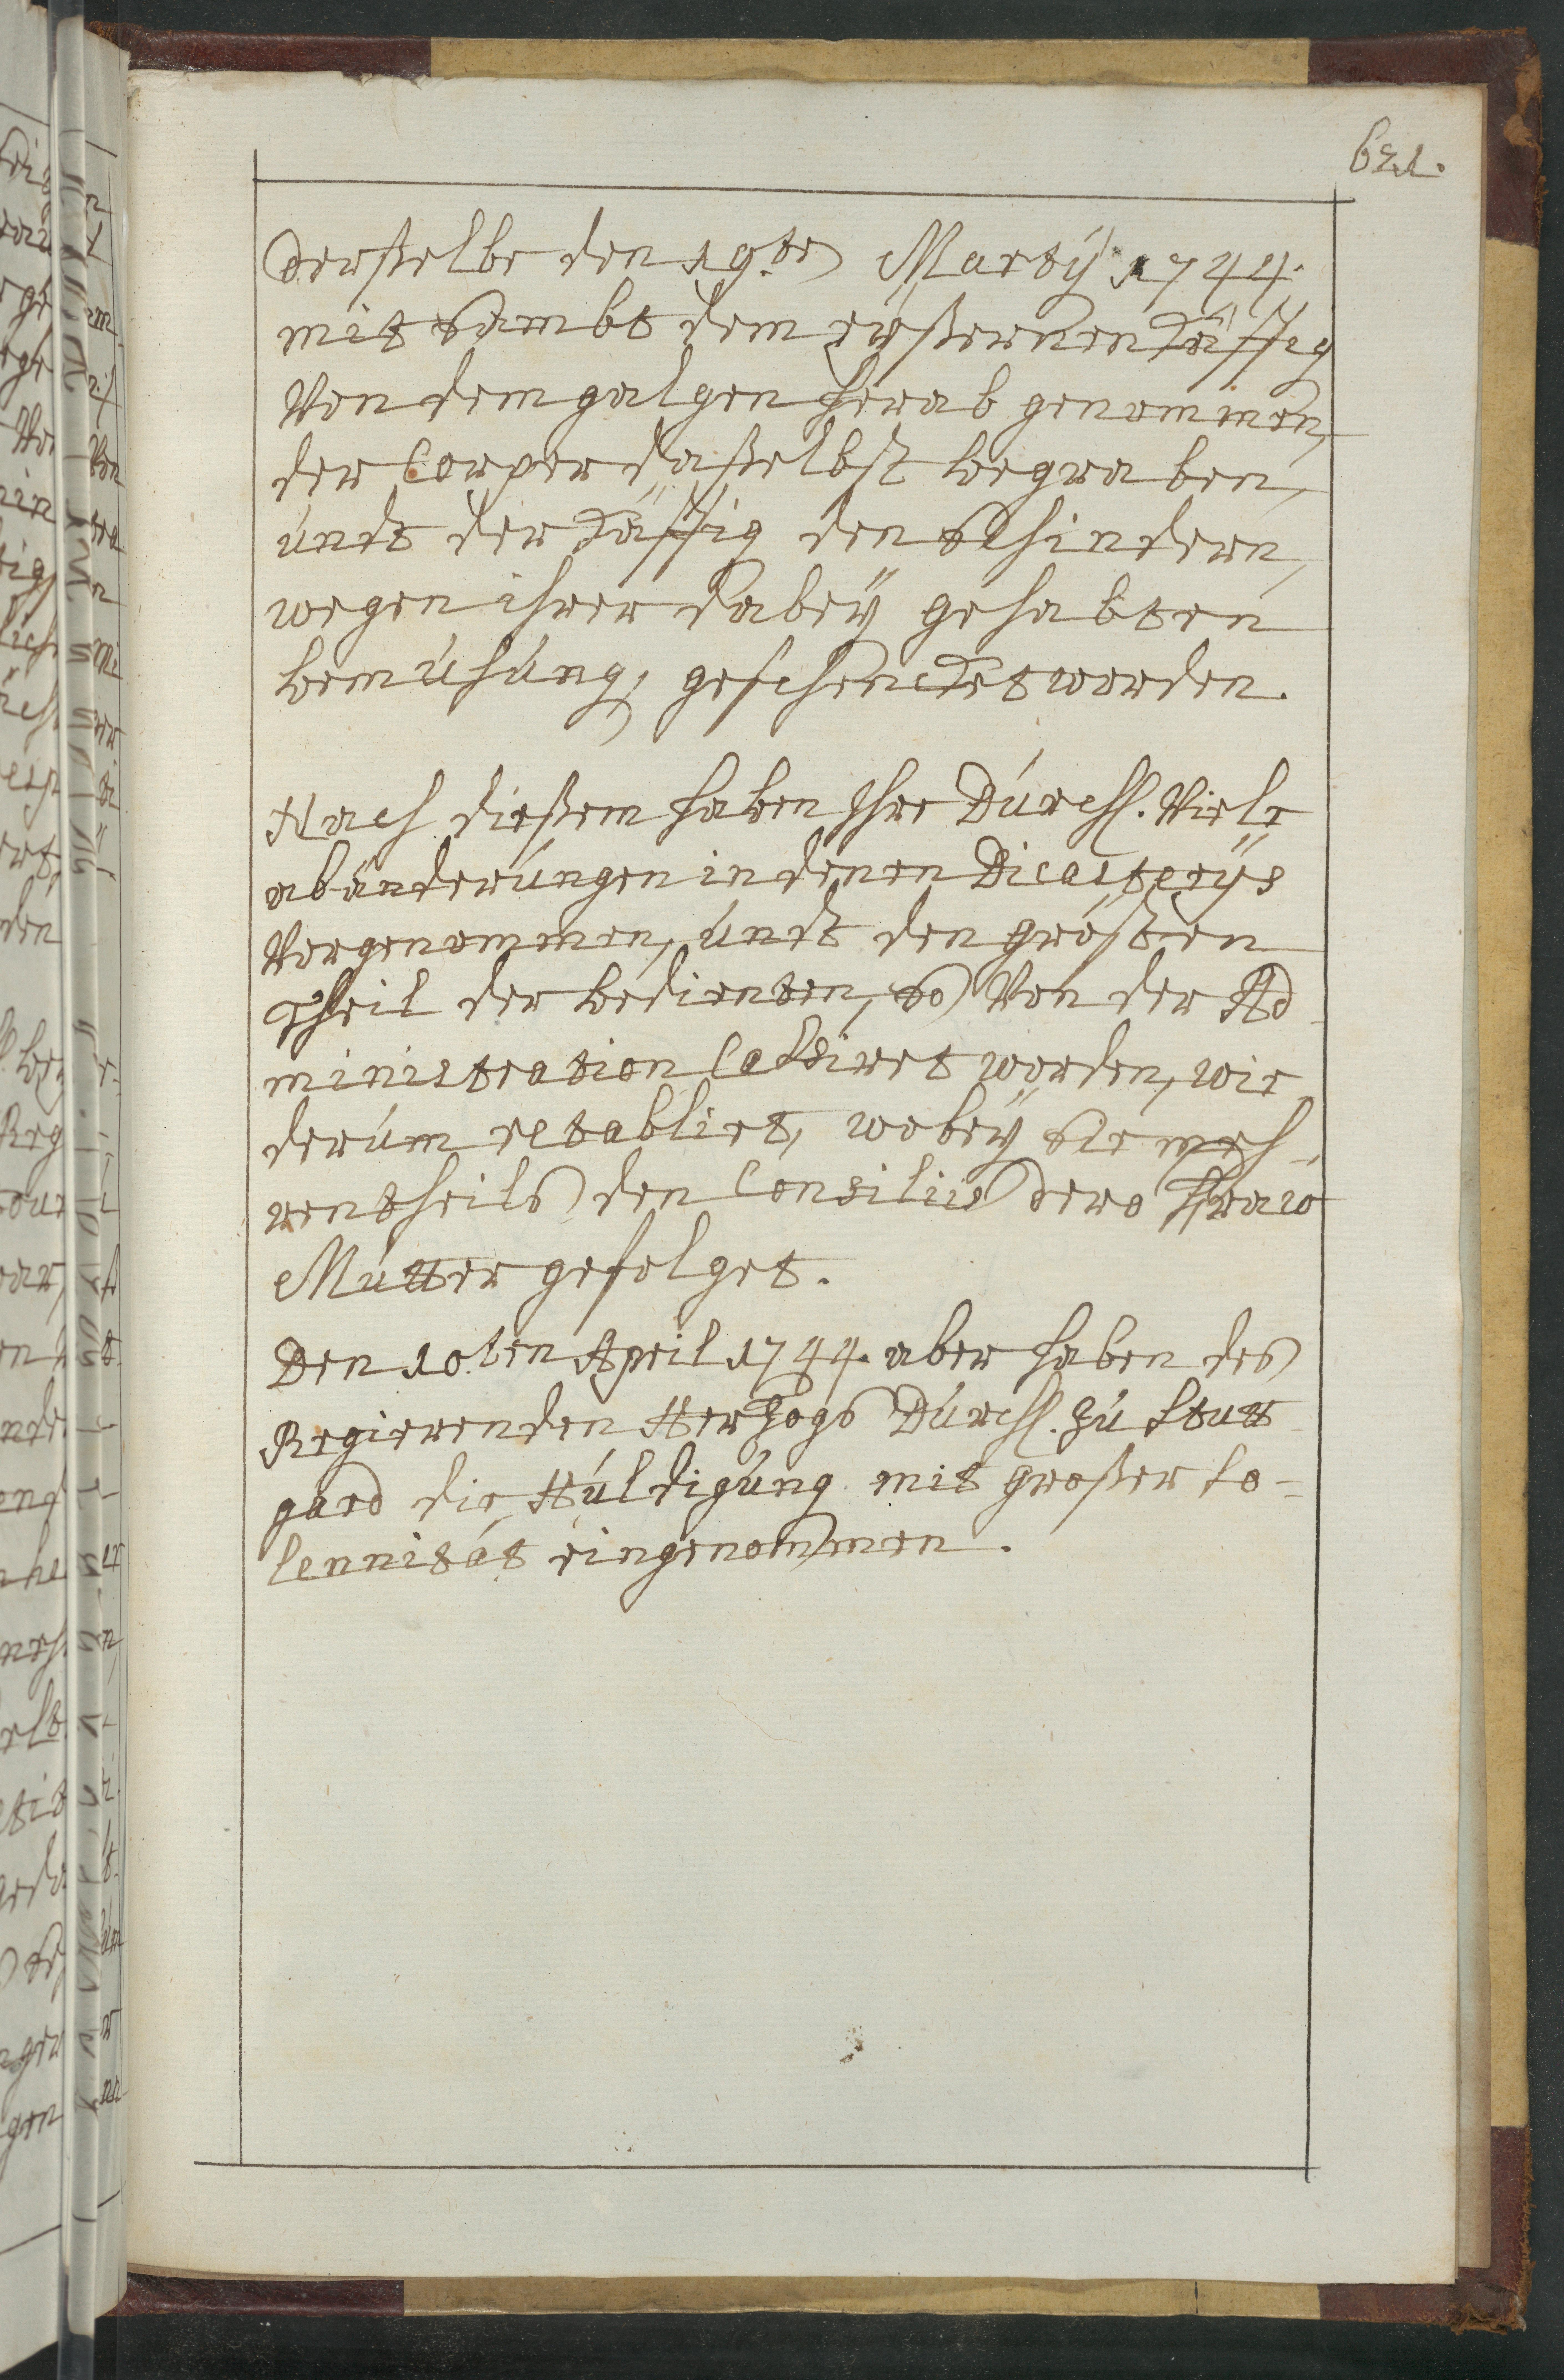 621.
derßelbe den 19.te Martÿ 1744.
mit sambt dem eyßernen Käffig
Von dem galgen herab genommen,
der Corper daßelbst begraben,
undt der Käffig den Schindern,
wegen ihrer dabeÿ gehabten
bemühung, geschencket worden.
Nach dießem haben Ihre Durchl. Viele
abänderungen in denen Dicasterÿs
Vorgenommen, undt den grösten
Theil der bedienten, so Von der Ad
ministration Cassiret worden, wie
derum retabliret, wobeÿ sie meh-
rentheils den Consiliis dero Fraw
Mutter gefolget.
Den 10.ten April 1744. aber haben des
Regierenden Herzogs Durchl. zu Stutt
gard die Huldigung mit großer So-
lennität eingenommen.